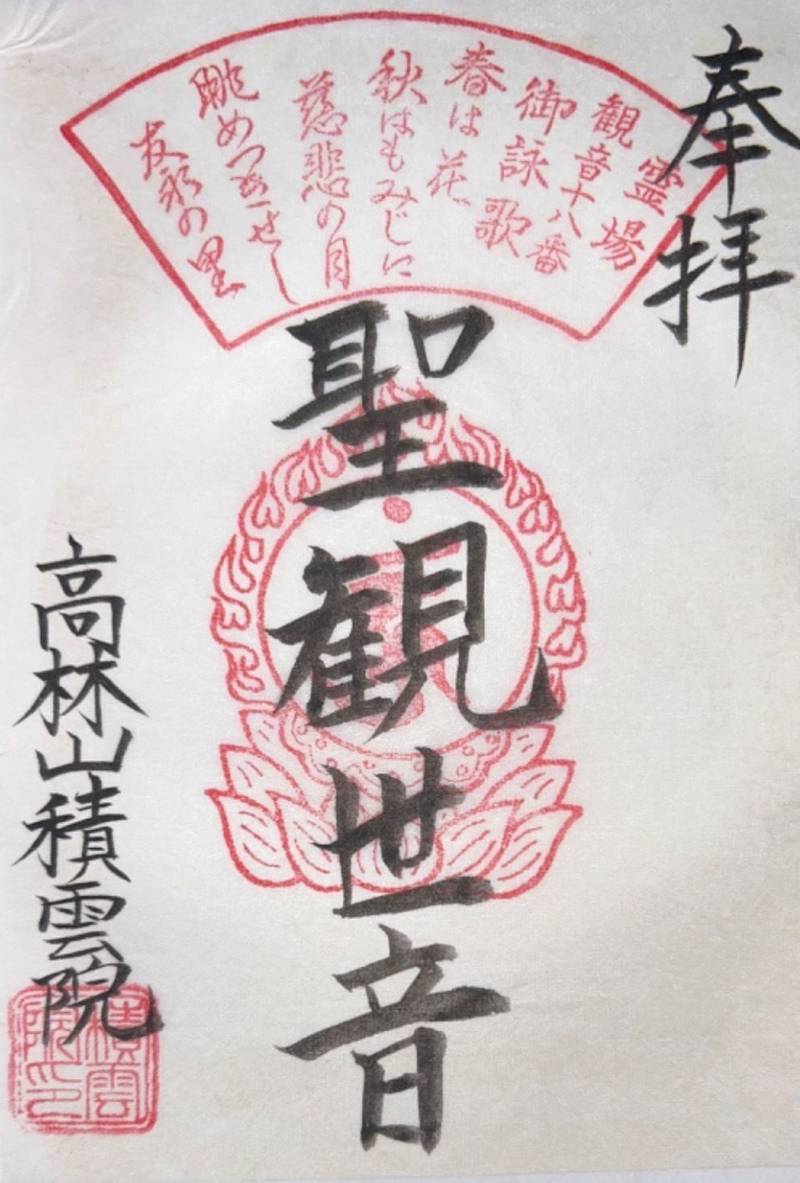 奉拝
霊場
観音十八番
御詠歌
春は花
秋はもみじに
慈悲の月
眺めつきせし
友永の里
聖観世音
高林山積雲院
積雲
院印